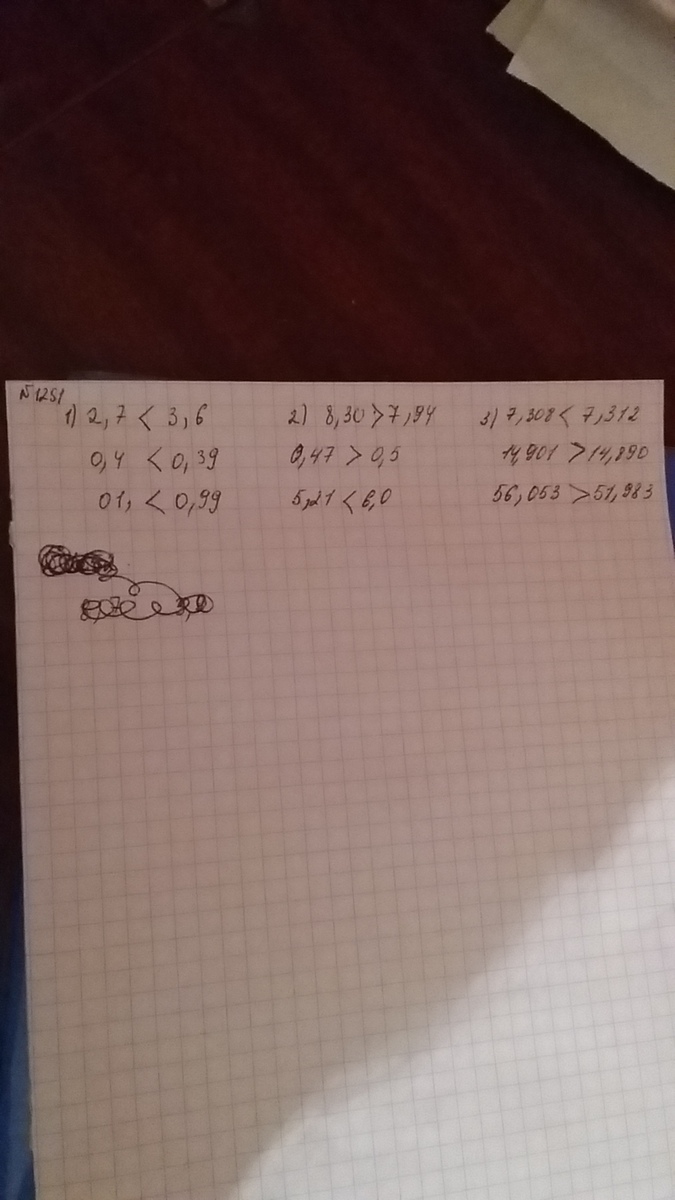 №1251
1) 2,7 < 3,6 2) 8,30 > 7,94 3) 7,308 < 7,312
0,4 < 0,39 0,47 > 0,5 14,901 > 14,890
01, < 0,99 5,21 < 6,0 56,053 > 51,983